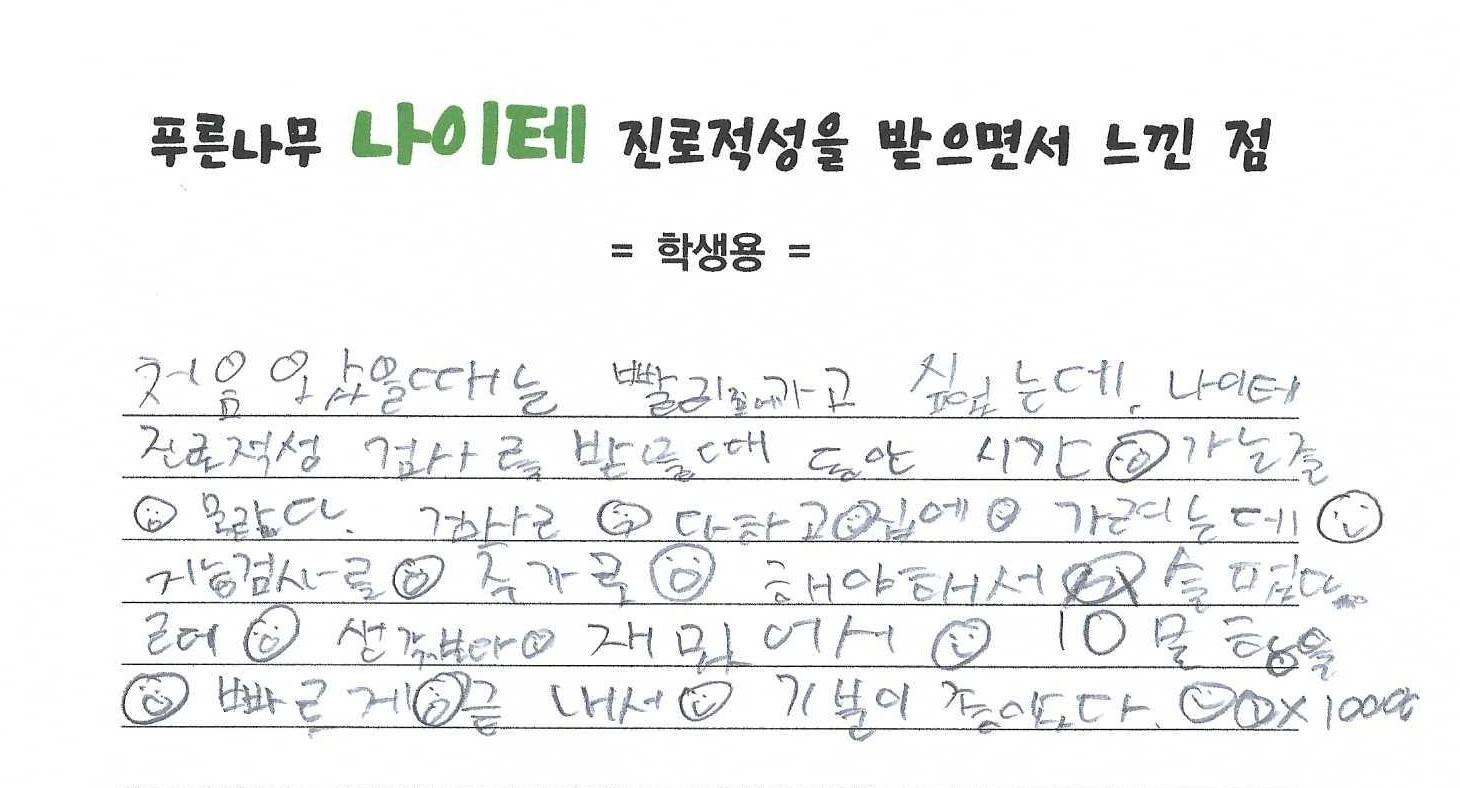 푸른나무 나이테 진로적성을 받으면서 느낀 점
= 학생용 =
처음 왔을때는 빨리 집에가고 싶었는데, 나이테
진로적성 검사를 받을때 동안 시간 가는줄
몰랐다. 검사를 다하고 집에 가려는데
지능검사를 추가로 해야해서 슬펐다...
근데 생각보다 재밌어서 10문항을
빠르게 끝내서 기분이 좋았다.